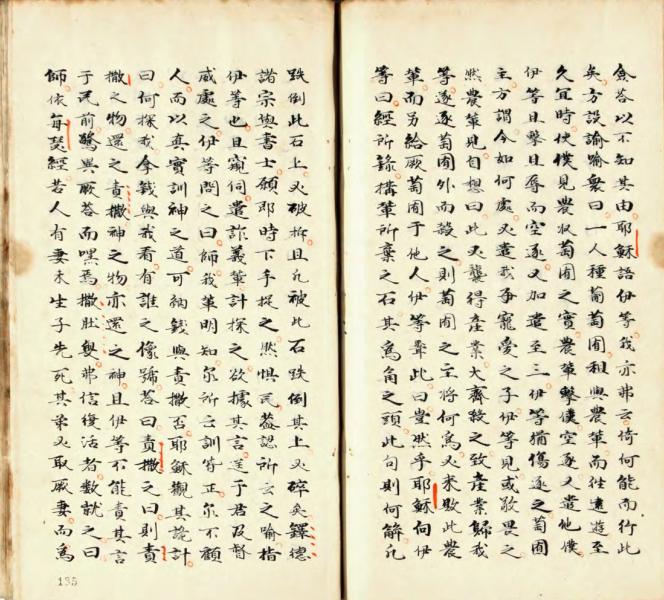 僉荅以不知其由耶穌語伊等我亦弗云倚何能而行此
矣方設諭喻衆曰一人種葡萄園租與農輩而徃遠遊至
久宜時使僕見農收萄園之實農輩擊僕空逐又遣他僕
伊等且擊且辱而空逐又加遣至三伊等猶傷逐之萄園
主方謂今如何處又遣我爭寵愛之子伊等見或敬畏之
然農輩見自想曰此乃襲得產業大齊殺之致產業歸我
等遂逐萄園外而殺之則萄園之主將何為乃來敗此農
輩而另給厥萄園于他人伊等聲此曰豈然乎耶穌向伊
等曰經所錄搆輩所棄之石其為角之頭此句則何解凡
跌倒此石上又破拆且凡被此石跌倒其上又碎矣鐸德
諸宗與書士願即時下手捉之然惧民蓋認所云之喻指
伊等也且窺伺遣詐義輩計探之欲據其言送于君及督
威處之伊等問之曰師我輩明知尔所云訓皆正尔不顧
人而以真實訓神之道可納錢與責撒否耶穌觀其詭計
曰何探我拿錢與我看有誰之像號荅曰責撒之曰則責
撒之物還之責撒神之物亦還之神且伊等不能責其言
于民前驚與厥荅而嘿焉撒肚嬰弗信復活者数就之曰
師依每瑟經若人有妻未生子先死其弟乂取厥妻而為
135